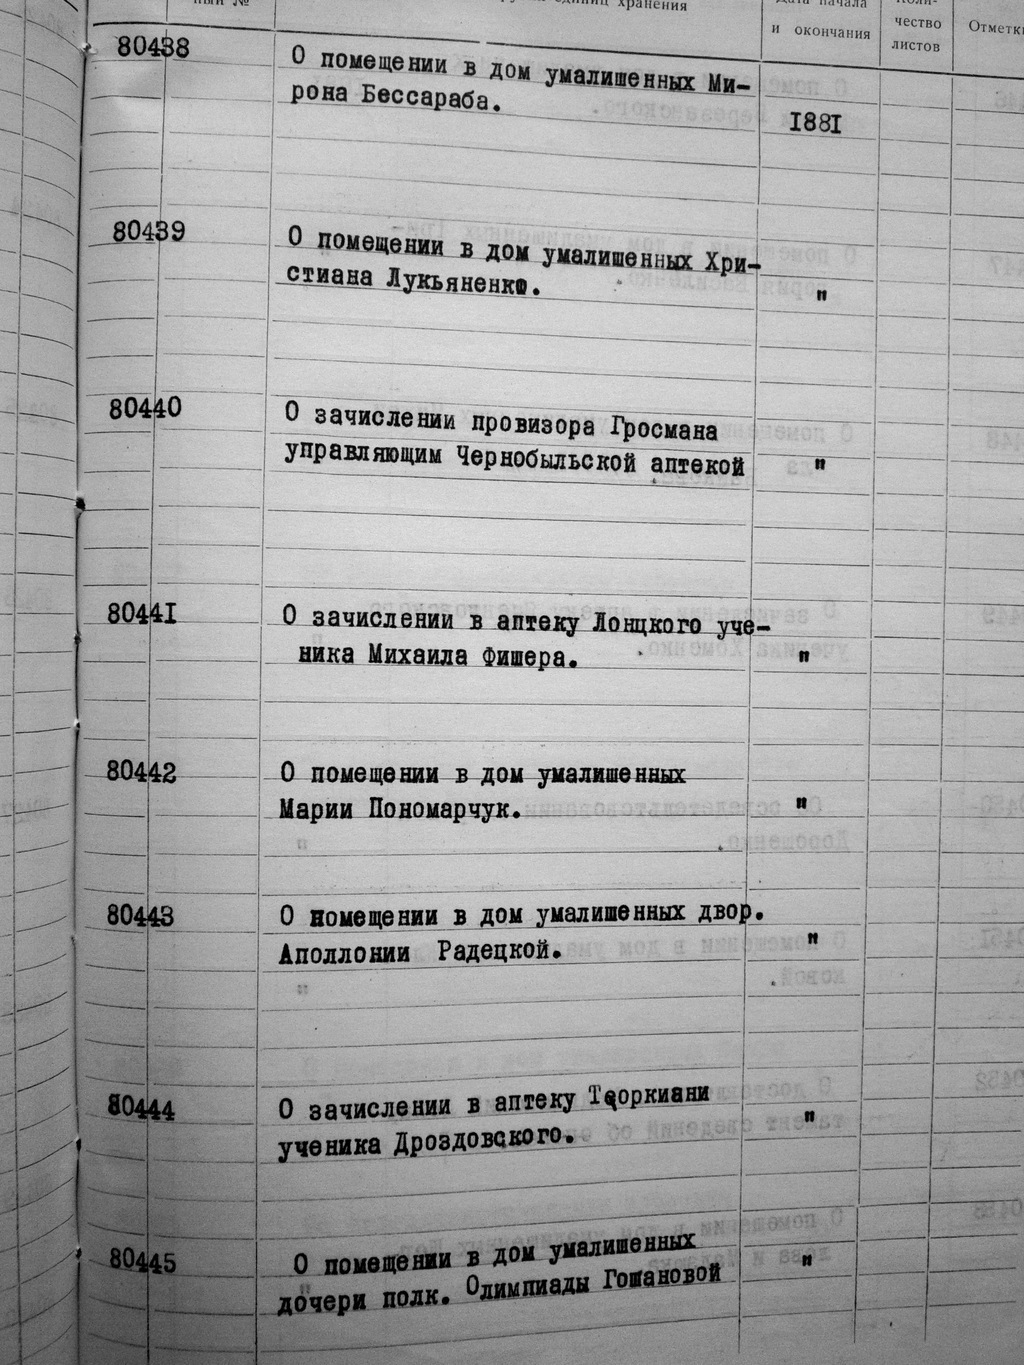 ный №
единиц хранения
Дата начала
и окончания
Коли-
чество
листов
Отметки
80438
О помещении в дом умалишенных Ми-
рона Бессараба.
I88I
80439
О помещении в дом умалишенных Хри-
стиана Лукьяненко.
"
80440
О зачислении провизора Гросмана
управляющим Чернобыльской аптекой
"
8044I
О зачислении в аптеку Лонцкого уче-
ника Михаила Фишера.
"
80442
О помещении в дом умалишенных
Марии Пономарчук.
"
80443
О помещении в дом умалишенных двор.
Аполлонии Радецкой.
"
80444
О зачислении в аптеку
ученика Дроздовского.
"
80445
О помещении в дом умалишенных
дочери полк. Олимпиады Гошановой
"